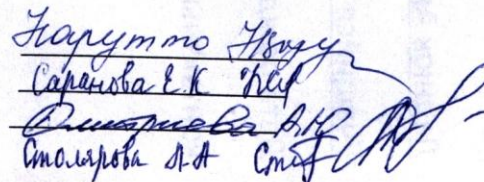 Нарутто
Саранова Е.К
Дмитриева А.Ю
Столярова Л.А